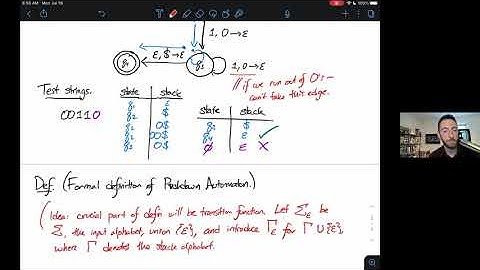 8:50 AM Mon Jul 19
1, 0→ε
ε, $→ε
q4
q3
1, 0→ε
// if we run out of 0's –
can't take this edge.
Test strings.
00110
state stack
q1 ε
q2 $
q2 0$
q2 00$
q3 0$
state stack
q3 $
q4 ε ✓
∅ ε ✗
Def. (Formal definition of Pushdown Automaton.)
(Idea: crucial part of defin will be transition function. Let Σε be
Σ, the input alphabet, union {ε}, and introduce Γε for Γ∪{ε},
where Γ denotes the stack alphabet.